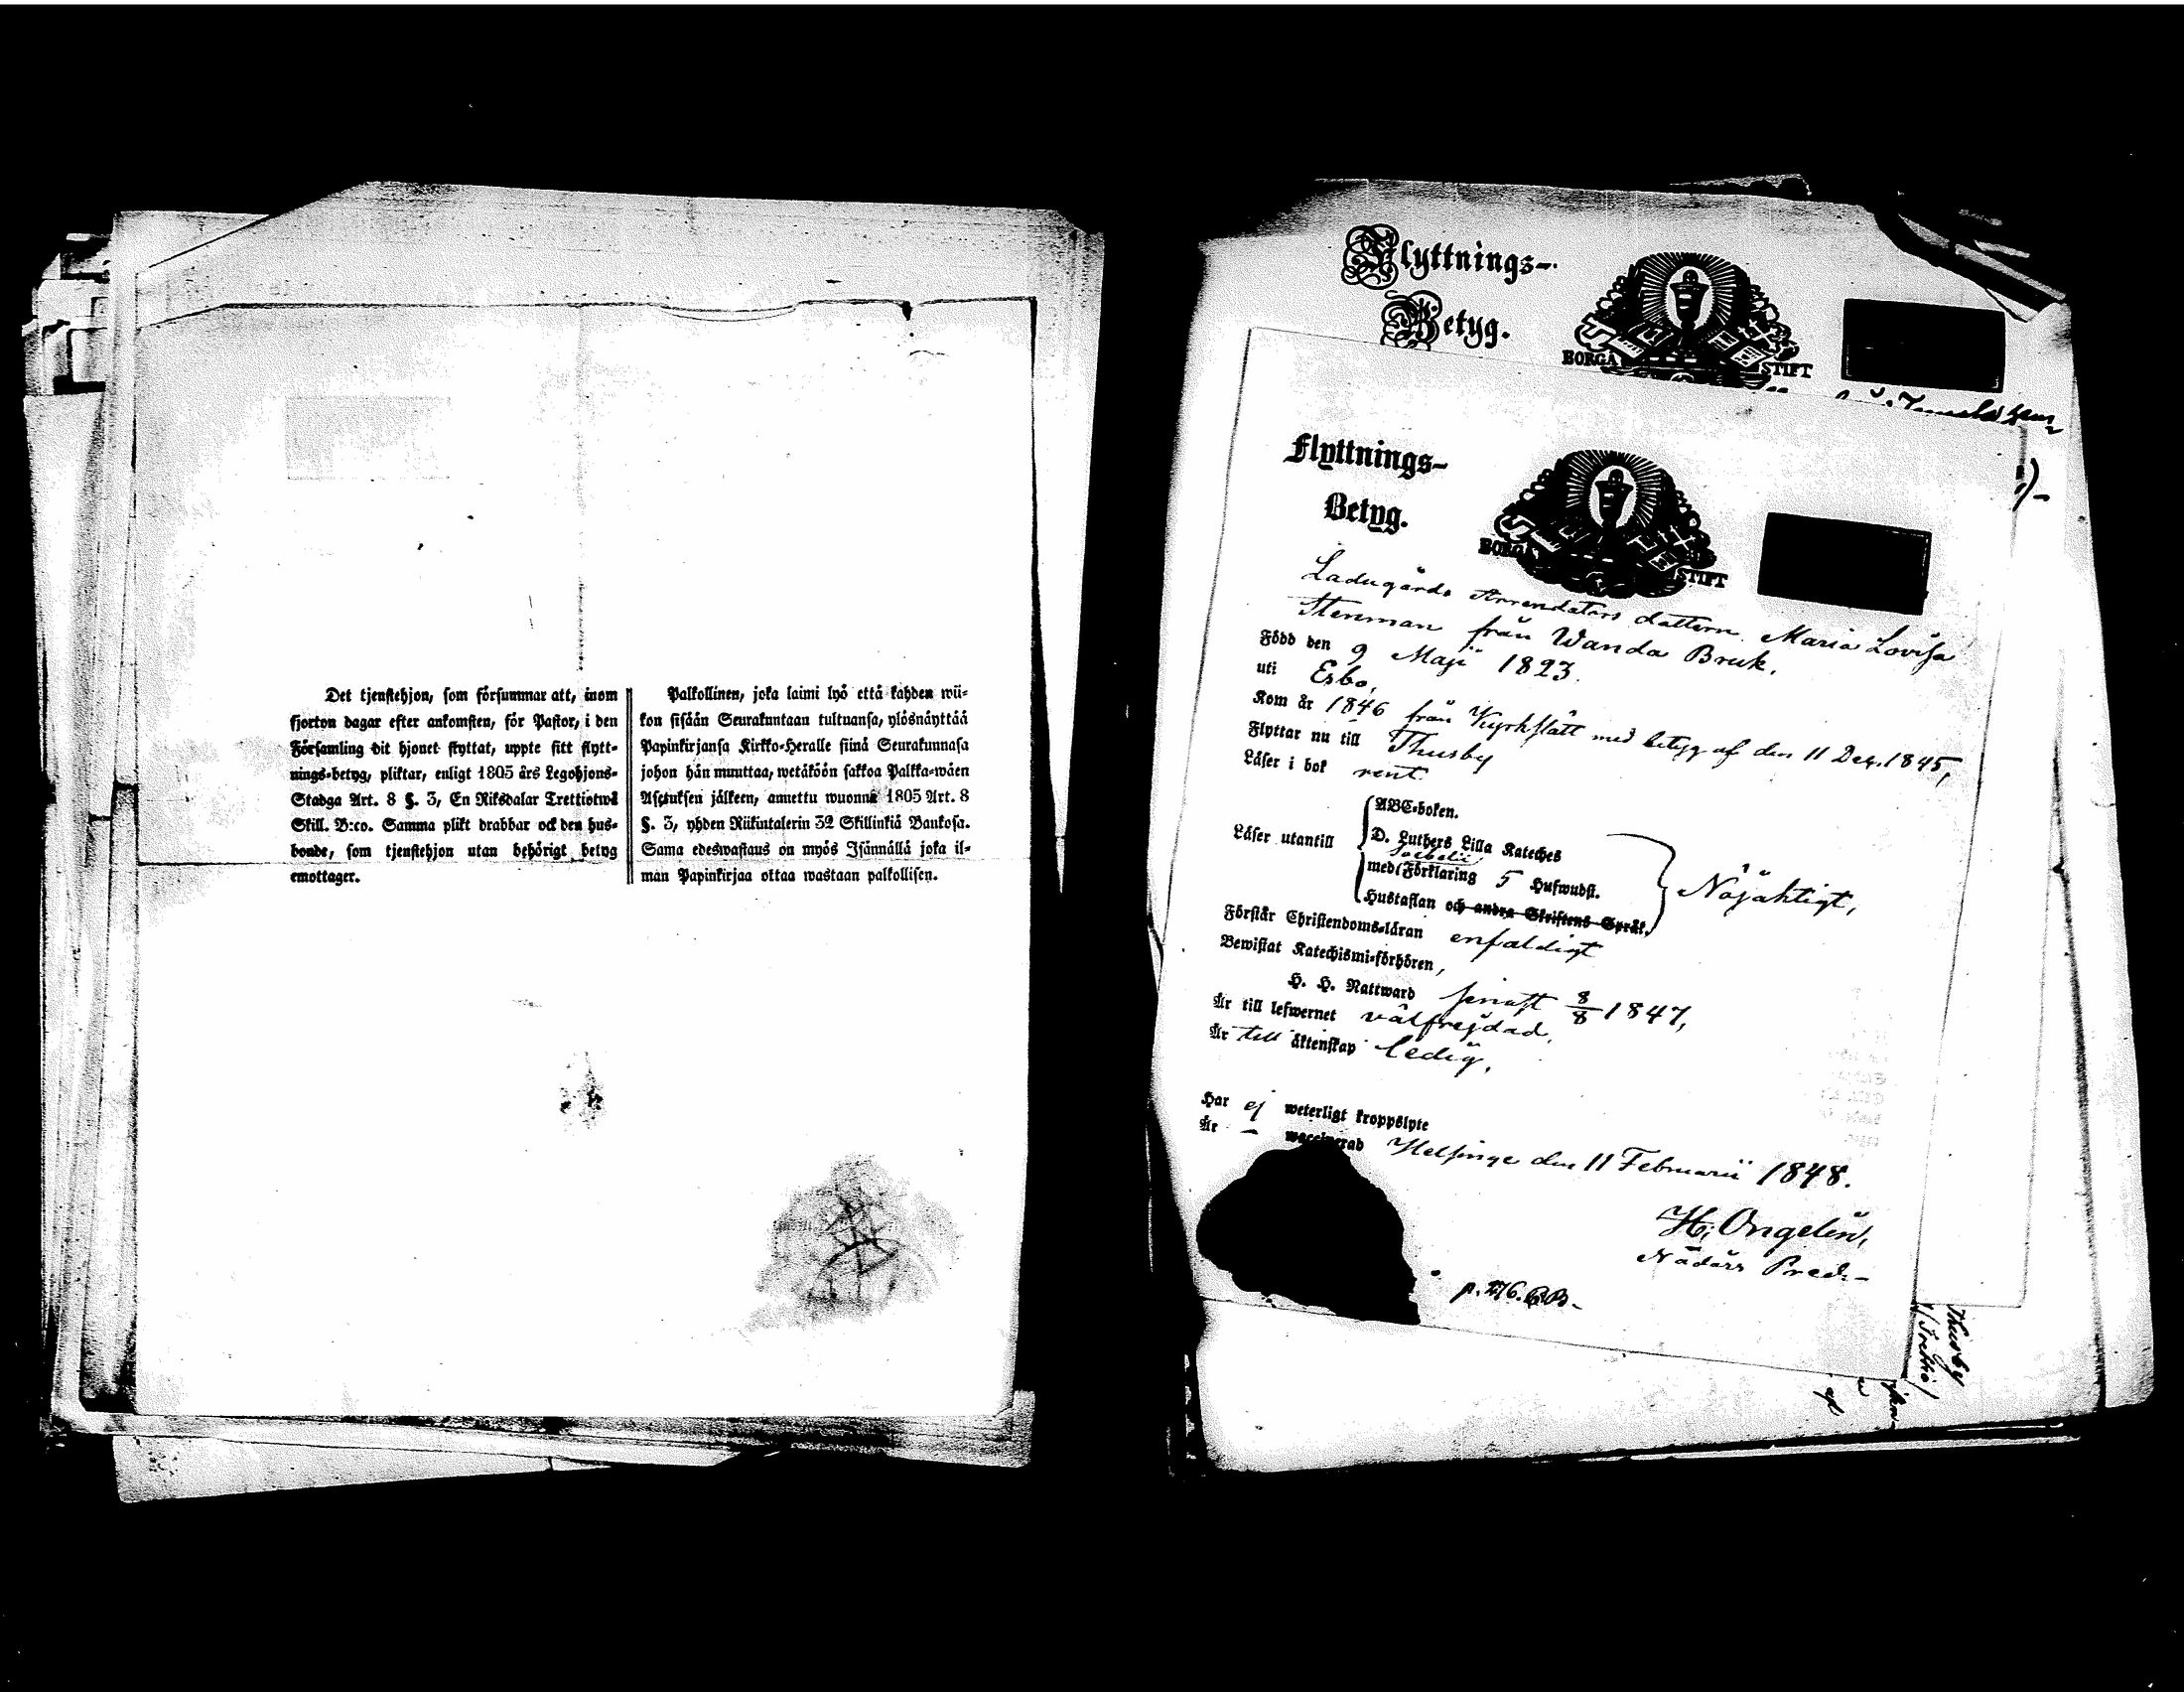 Det tjenstehjon, som försummar att, inom
fjorton dagar efter ankomsten, för Pastor, i den
Församling dit hjonet flyttat, uppte sitt flytt-
nings-betyg, pliktar, enligt 1805 års Legohjons-
Stadga Art. 8 §. 3, En Riksdalar Trettiotwå
Skill. B:co. Samma plikt drabbar ock den hus-
bonde, som tjenstehjon utan behörigt betyg
emottager.
Palkollinen, joka laimi lyö että kahden wii-
kon sisään Seurakuntaan tultuansa, ylösnäyttää
Papinkirjansa Kirkko-Heralle siinä Seurakunnasa
johon hän muuttaa, wetäköön sakkoa Palkka-wäen
Asetuksen jälkeen, annettu wuonna 1805 Art. 8
§. 3, yhden Riikintalerin 32 Skillinkiä Bankosa.
Sama edeswastaus on myös Isännällä joka il-
man Papinkirjaa ottaa wastaan palkollisen.
Flyttnings-
Betyg.
BORGÅ STIFT
Flyttnings-
Betyg.
BORGÅ STIFT
Ladugårds Arrendators dattern Maria Lovisa
Stenman från Wanda Bruk.
Född den 9 Maji 1823.
uti Esbo,
Kom år 1846 från Kyrkslätt med betyg af den 11 Dec. 1845,
Flyttar nu till Thusby
Läser i bok rent
Läser utantill
ABC-boken.
D. Luthers Lilla Kateches
med Förklaring 5 Hufwudst.
Hustaflan och andra Skriftens Språk.
Nöjaktigt,
Förstår Christendoms-läran enfaldigt
Bewistat Katechismi-förhören,
H. H. Nattward sinast 8/8 1847,
Är till lefwernet välfrejdad,
Är till äktenskap ledig,
Har ej weterligt kroppslyte
Är – waccinerad Helsinge den 11 Februarii 1848.
H. Ongelin,
Nådårs Pred.-
Thusby